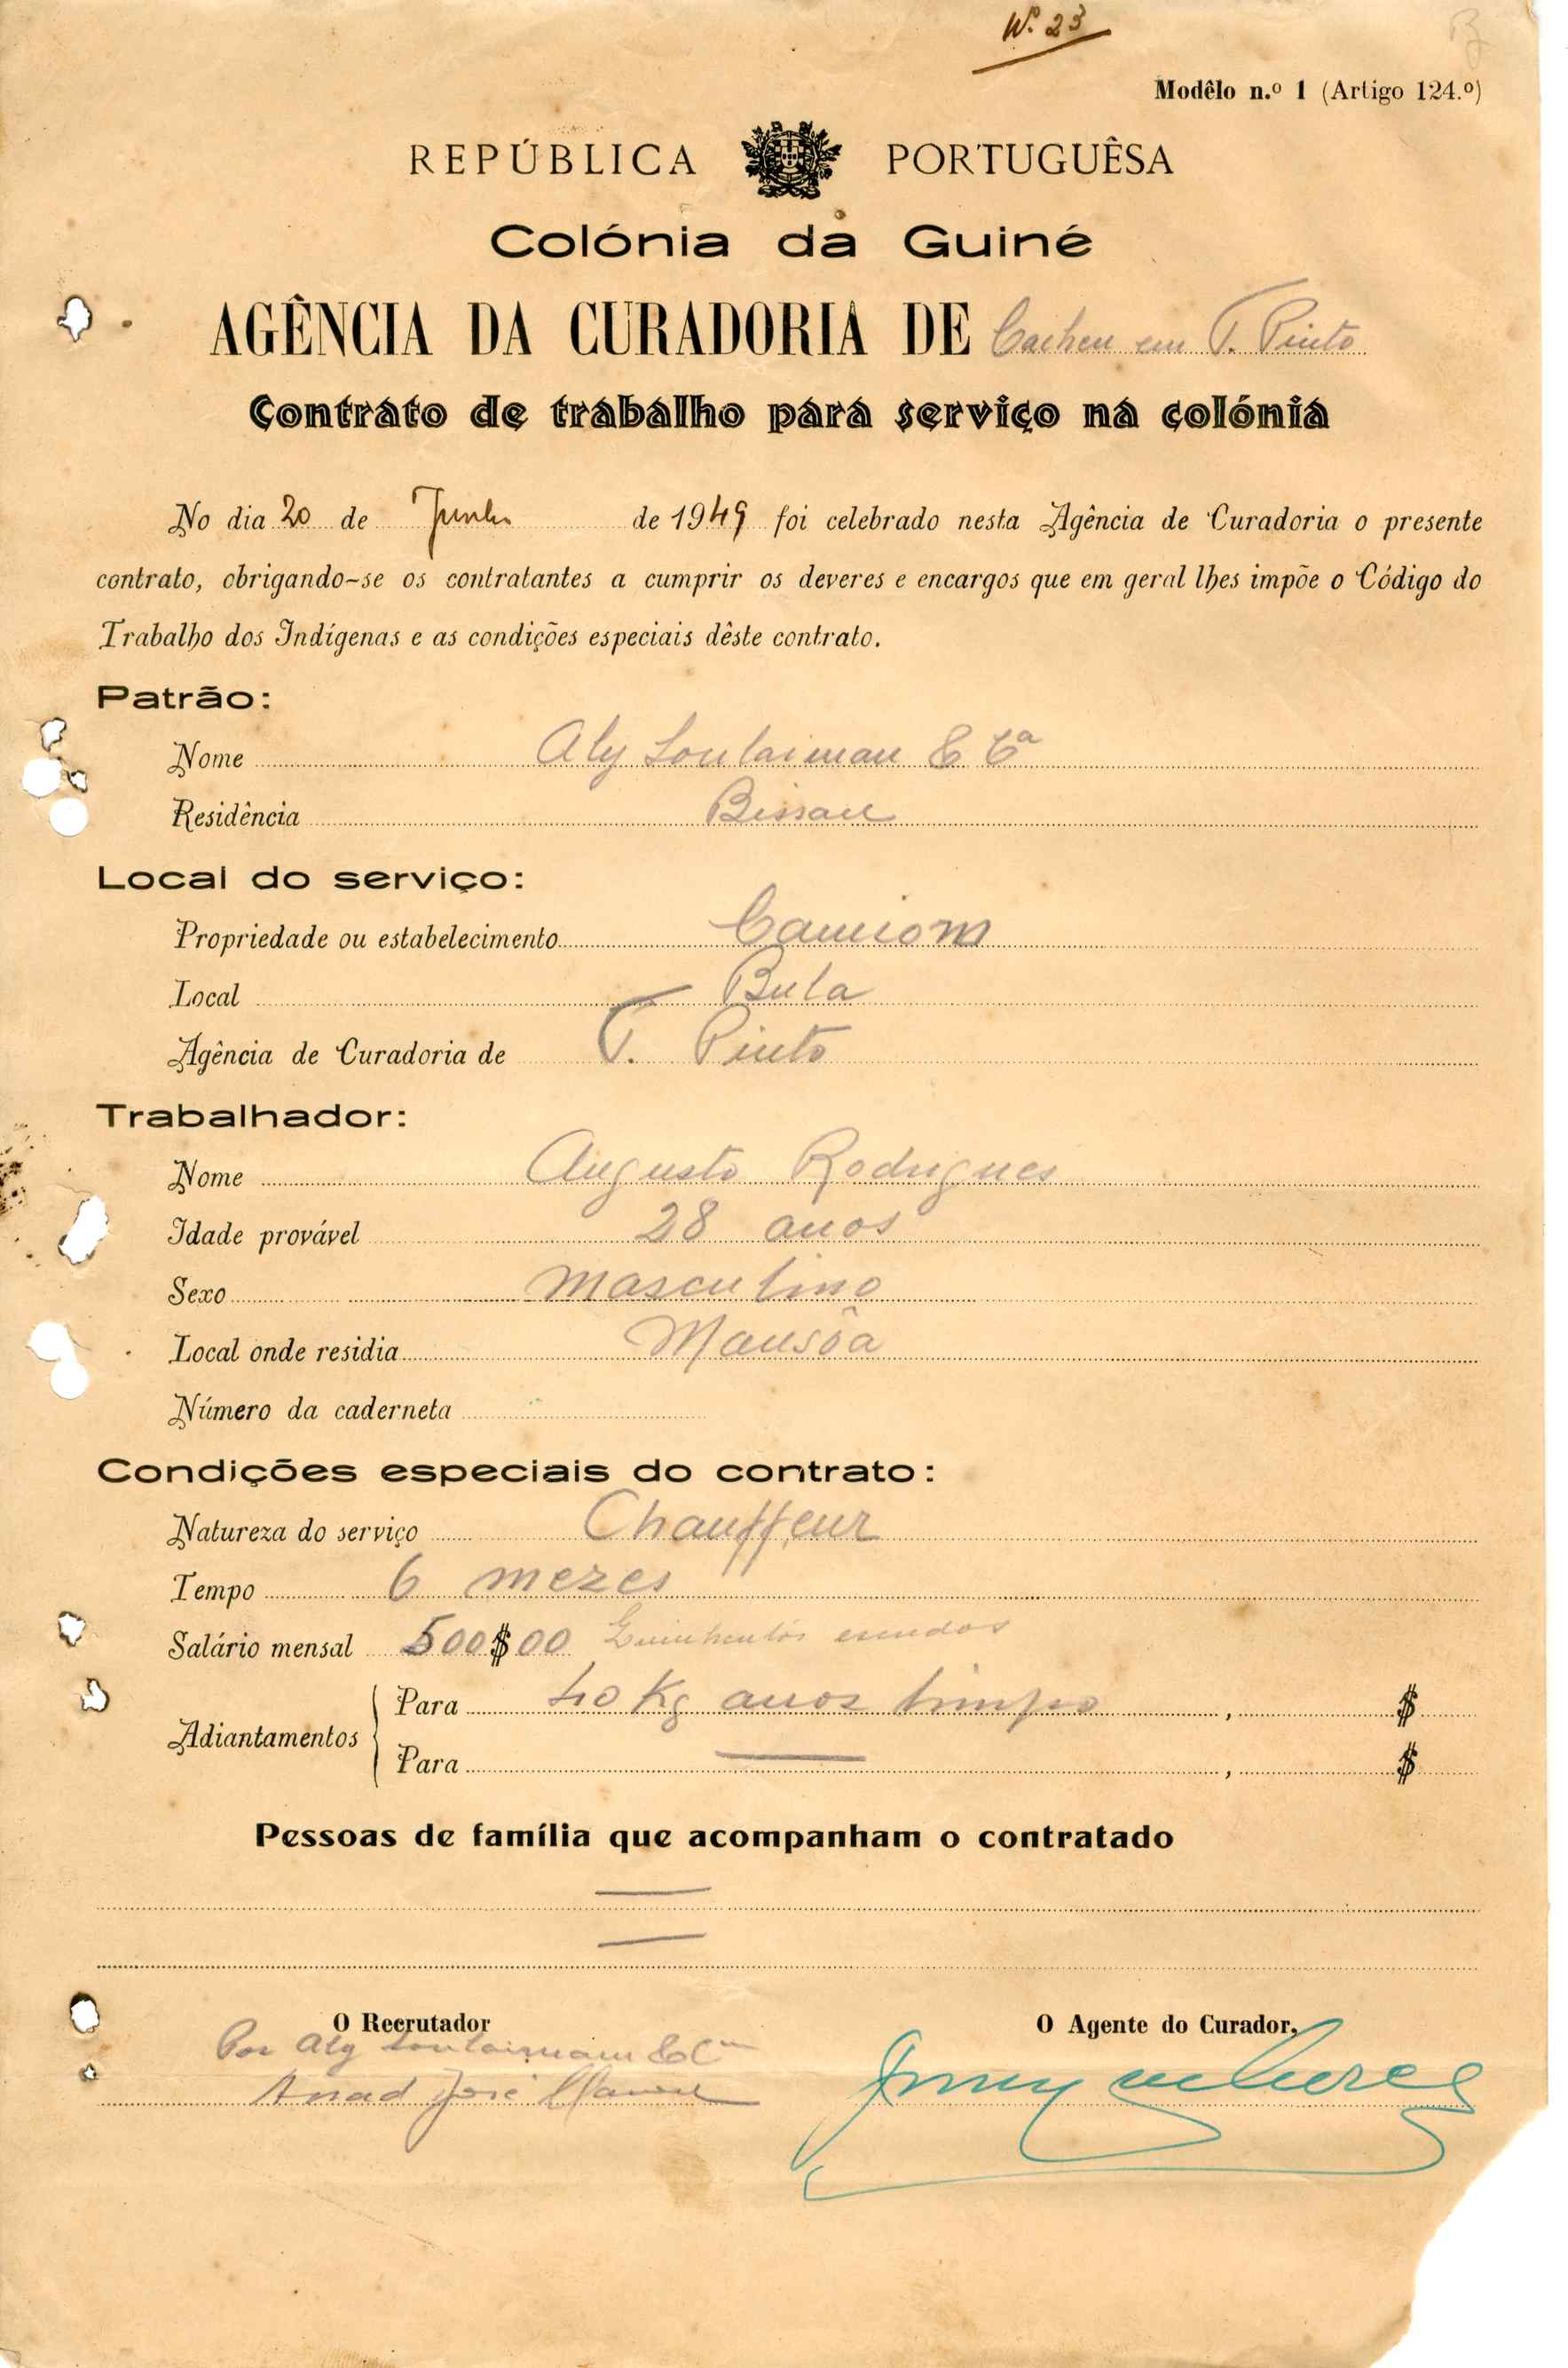 Nº 23
Modêlo n.º 1 (Artigo 124.º)
REPÚBLICA PORTUGUÊSA
Colónia da Guiné
AGÊNCIA DA CURADORIA DE Cacheu em T. Pinto
Contrato de trabalho para serviço na colónia
No dia 20 de Junho de 1949 foi celebrado nesta Agência de Curadoria o presente
contrato, obrigando-se os contratantes a cumprir os deveres e encargos que em geral lhes impõe o Código do
Trabalho dos Indígenas e as condições especiais dêste contrato.
Patrão:
Nome Aly Soulaiman & Cª
Residência Bissau
Local do serviço:
Propriedade ou estabelecimento Camiom
Local Bula
Agência de Curadoria de T. Pinto
Trabalhador:
Nome Augusto Rodrigues
Idade provável 28 anos
Sexo Masculino
Local onde residia Mansôa
Número da caderneta
Condições especiais do contrato:
Natureza do serviço Chauffeur
Tempo 6 mezes
Salário mensal 500$00 Quinhentos escudos
Adiantamentos
Para 40 Kg arroz limpo , $
Para , $
Pessoas de família que acompanham o contratado
O Recrutador
O Agente do Curador,
Por Aly Soulaimam & Cª
José